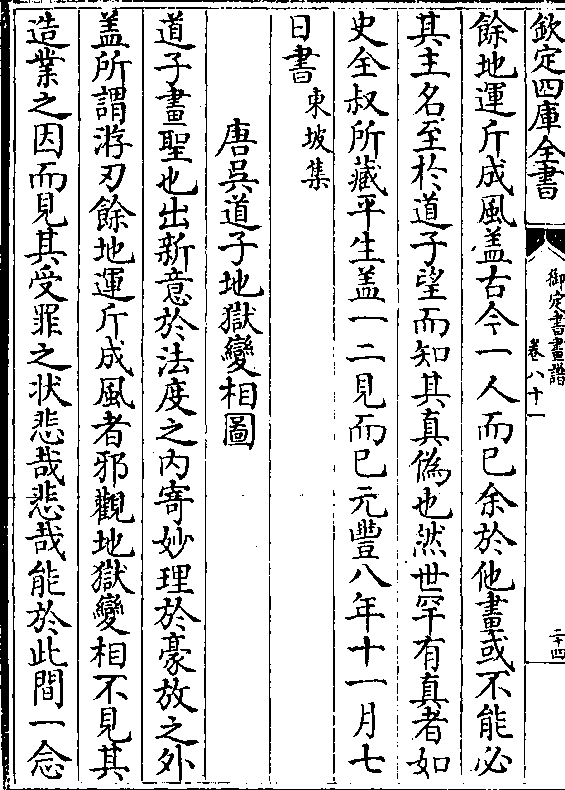 欽定四庫全書
御定書畫譜
卷八十一
二十四
餘地運斤成風盖古今一人而已余於他畫或不能必
其主名至於道子望而知其真偽也然世罕有真者如
史全叔所藏平生盖一二見而已元豐八年十一月七
日書 東坡集
唐吳道子地獄變相圖
道子畫聖也出新意於法度之内寄妙理於豪放之外
盖所謂游刃餘地運斤成風者邪觀地獄變相不見其
造業之因而見其受罪之状悲哉悲哉能於此間一念